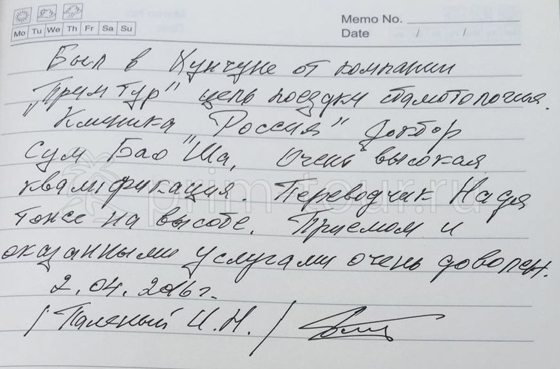 Memo No.
Mo Tu We Th Fr Sa Su
Date / /
Был в Хунчуне от компании
"Прим Тур" цель поездки стамотология.
Клиника "Россия" Доктор
Сум Бао Ша, Очень высокая
квалификация. Переводчик Надя
тоже на высоте. Приемом и
оказанными услугами очень доволен.
2.04.2016г.
/Паленый И.Н./
prim-tour.ru